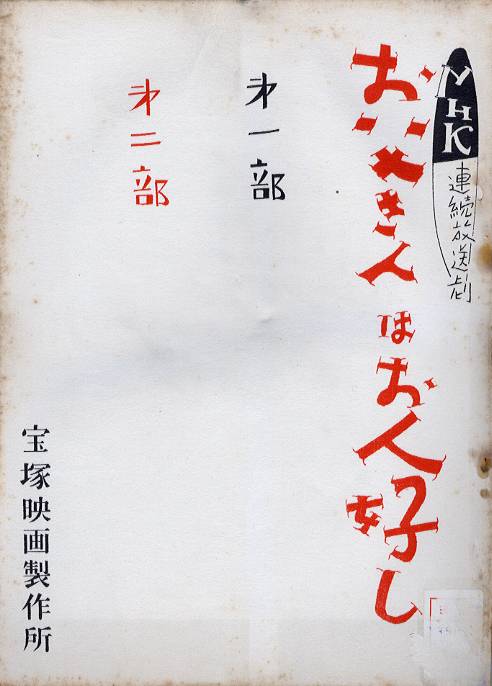 NHK
連続放送劇
お父さんはお人好し
第一部
第二部
宝塚映画製作所